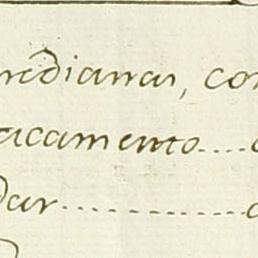 redianas, co
acamento....
dar............